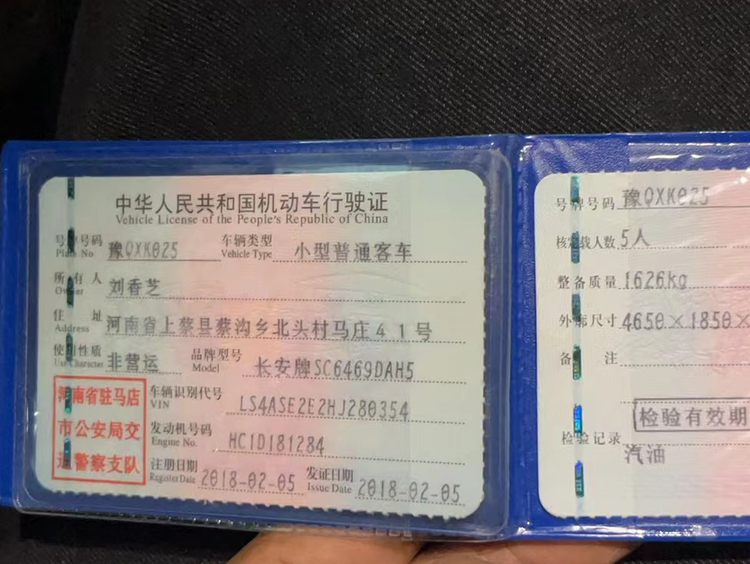 中华人民共和国机动车行驶证
Vehicle License of the People's Republic of China
号牌号码 豫QXK025 车辆类型 小型普通客车
Plate No Vehicle Type
所有人 刘香芝
Owner
住址 河南省上蔡县蔡沟乡北头村马庄41号
Address
使用性质 非营运 品牌型号 长安牌SC6469DAH5
Use Character Model
河南省驻马店
市公安局交
通警察支队
车辆识别代号 LS4ASE2E2HJ280354
VIN
发动机号码 HC1D181284
Engine No.
注册日期 2018-02-05 发证日期 2018-02-05
Register Date Issue Date
号牌号码 豫QXK025
核定载人数 5人
整备质量 1626kg
外廓尺寸 4650×1850×
备注
检验有效期
检验记录
汽油